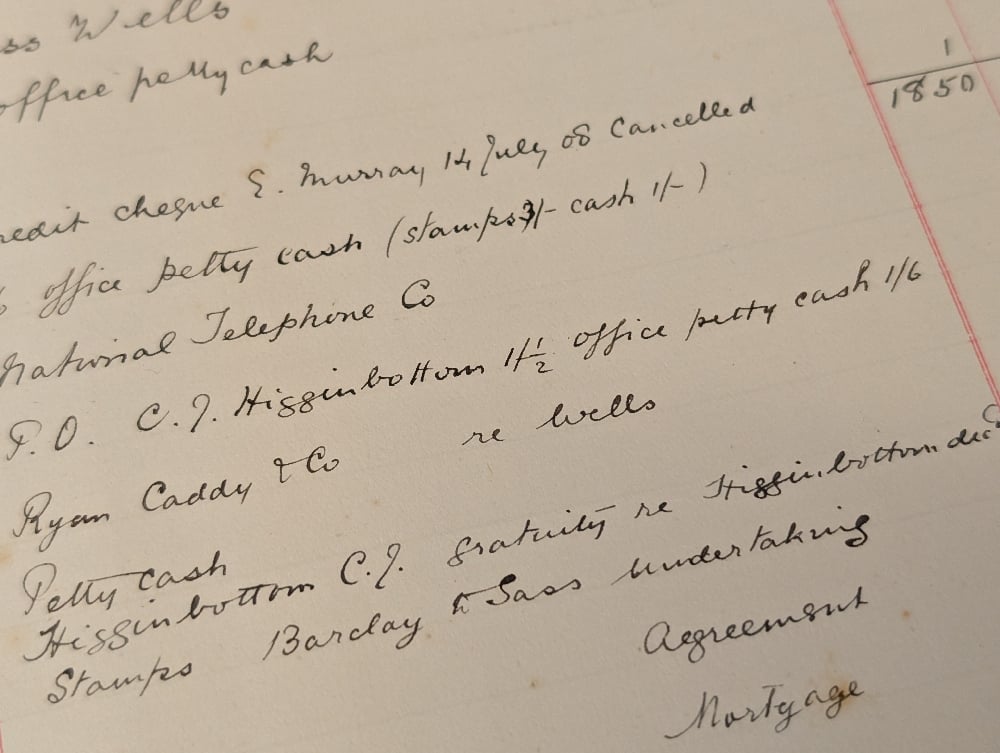 ss Wells
office petty cash
1
1850
redit cheque E. Murray 14 July 08 Cancelled
office petty cash (stamps 3/- cash 1/-)
National Telephone Co
P.O. C.J. Higginbottom 1/1½ office petty cash 1/6
Ryan Caddy & Co re Wells
Petty cash
Higginbottom C.J. gratuity re Higginbottom decd
Stamps Barclay to Sass undertaking
Agreement
Mortgage